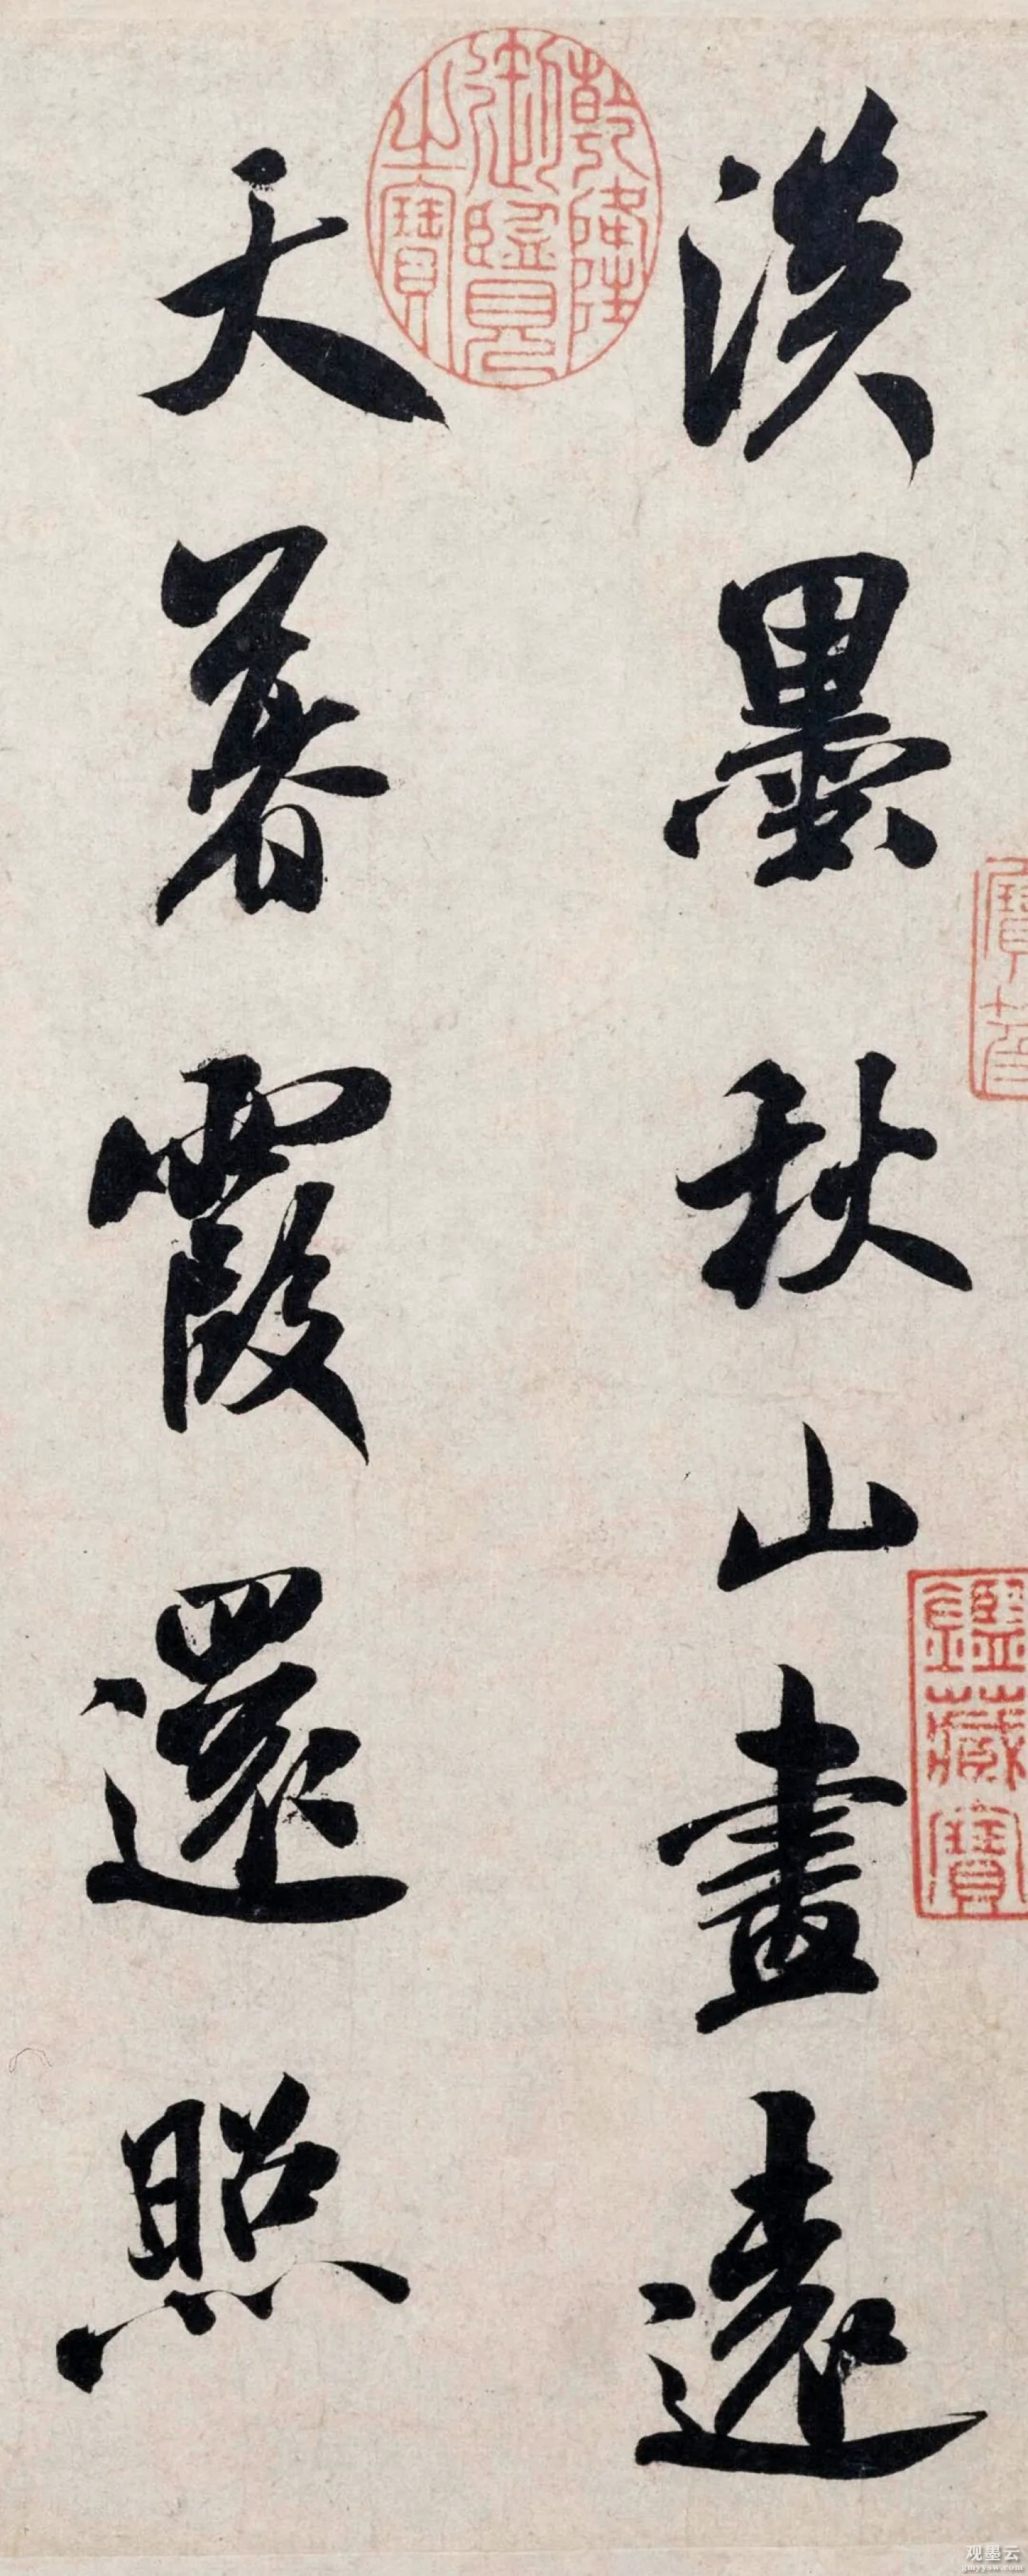 淡墨秋山畫遠
天暮霞還照
乾隆
御覽
之寶
鑑藏寶
观墨云
gmyyaw.com